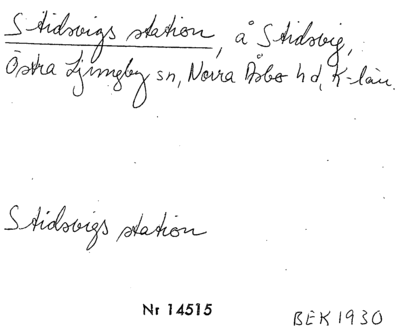 Stidsvigs station, å Stidsvig,
Östra Ljungby sn, Norra Åsbo hd, K-län.
Stidsvigs station
Nr 14515
BEK 1930